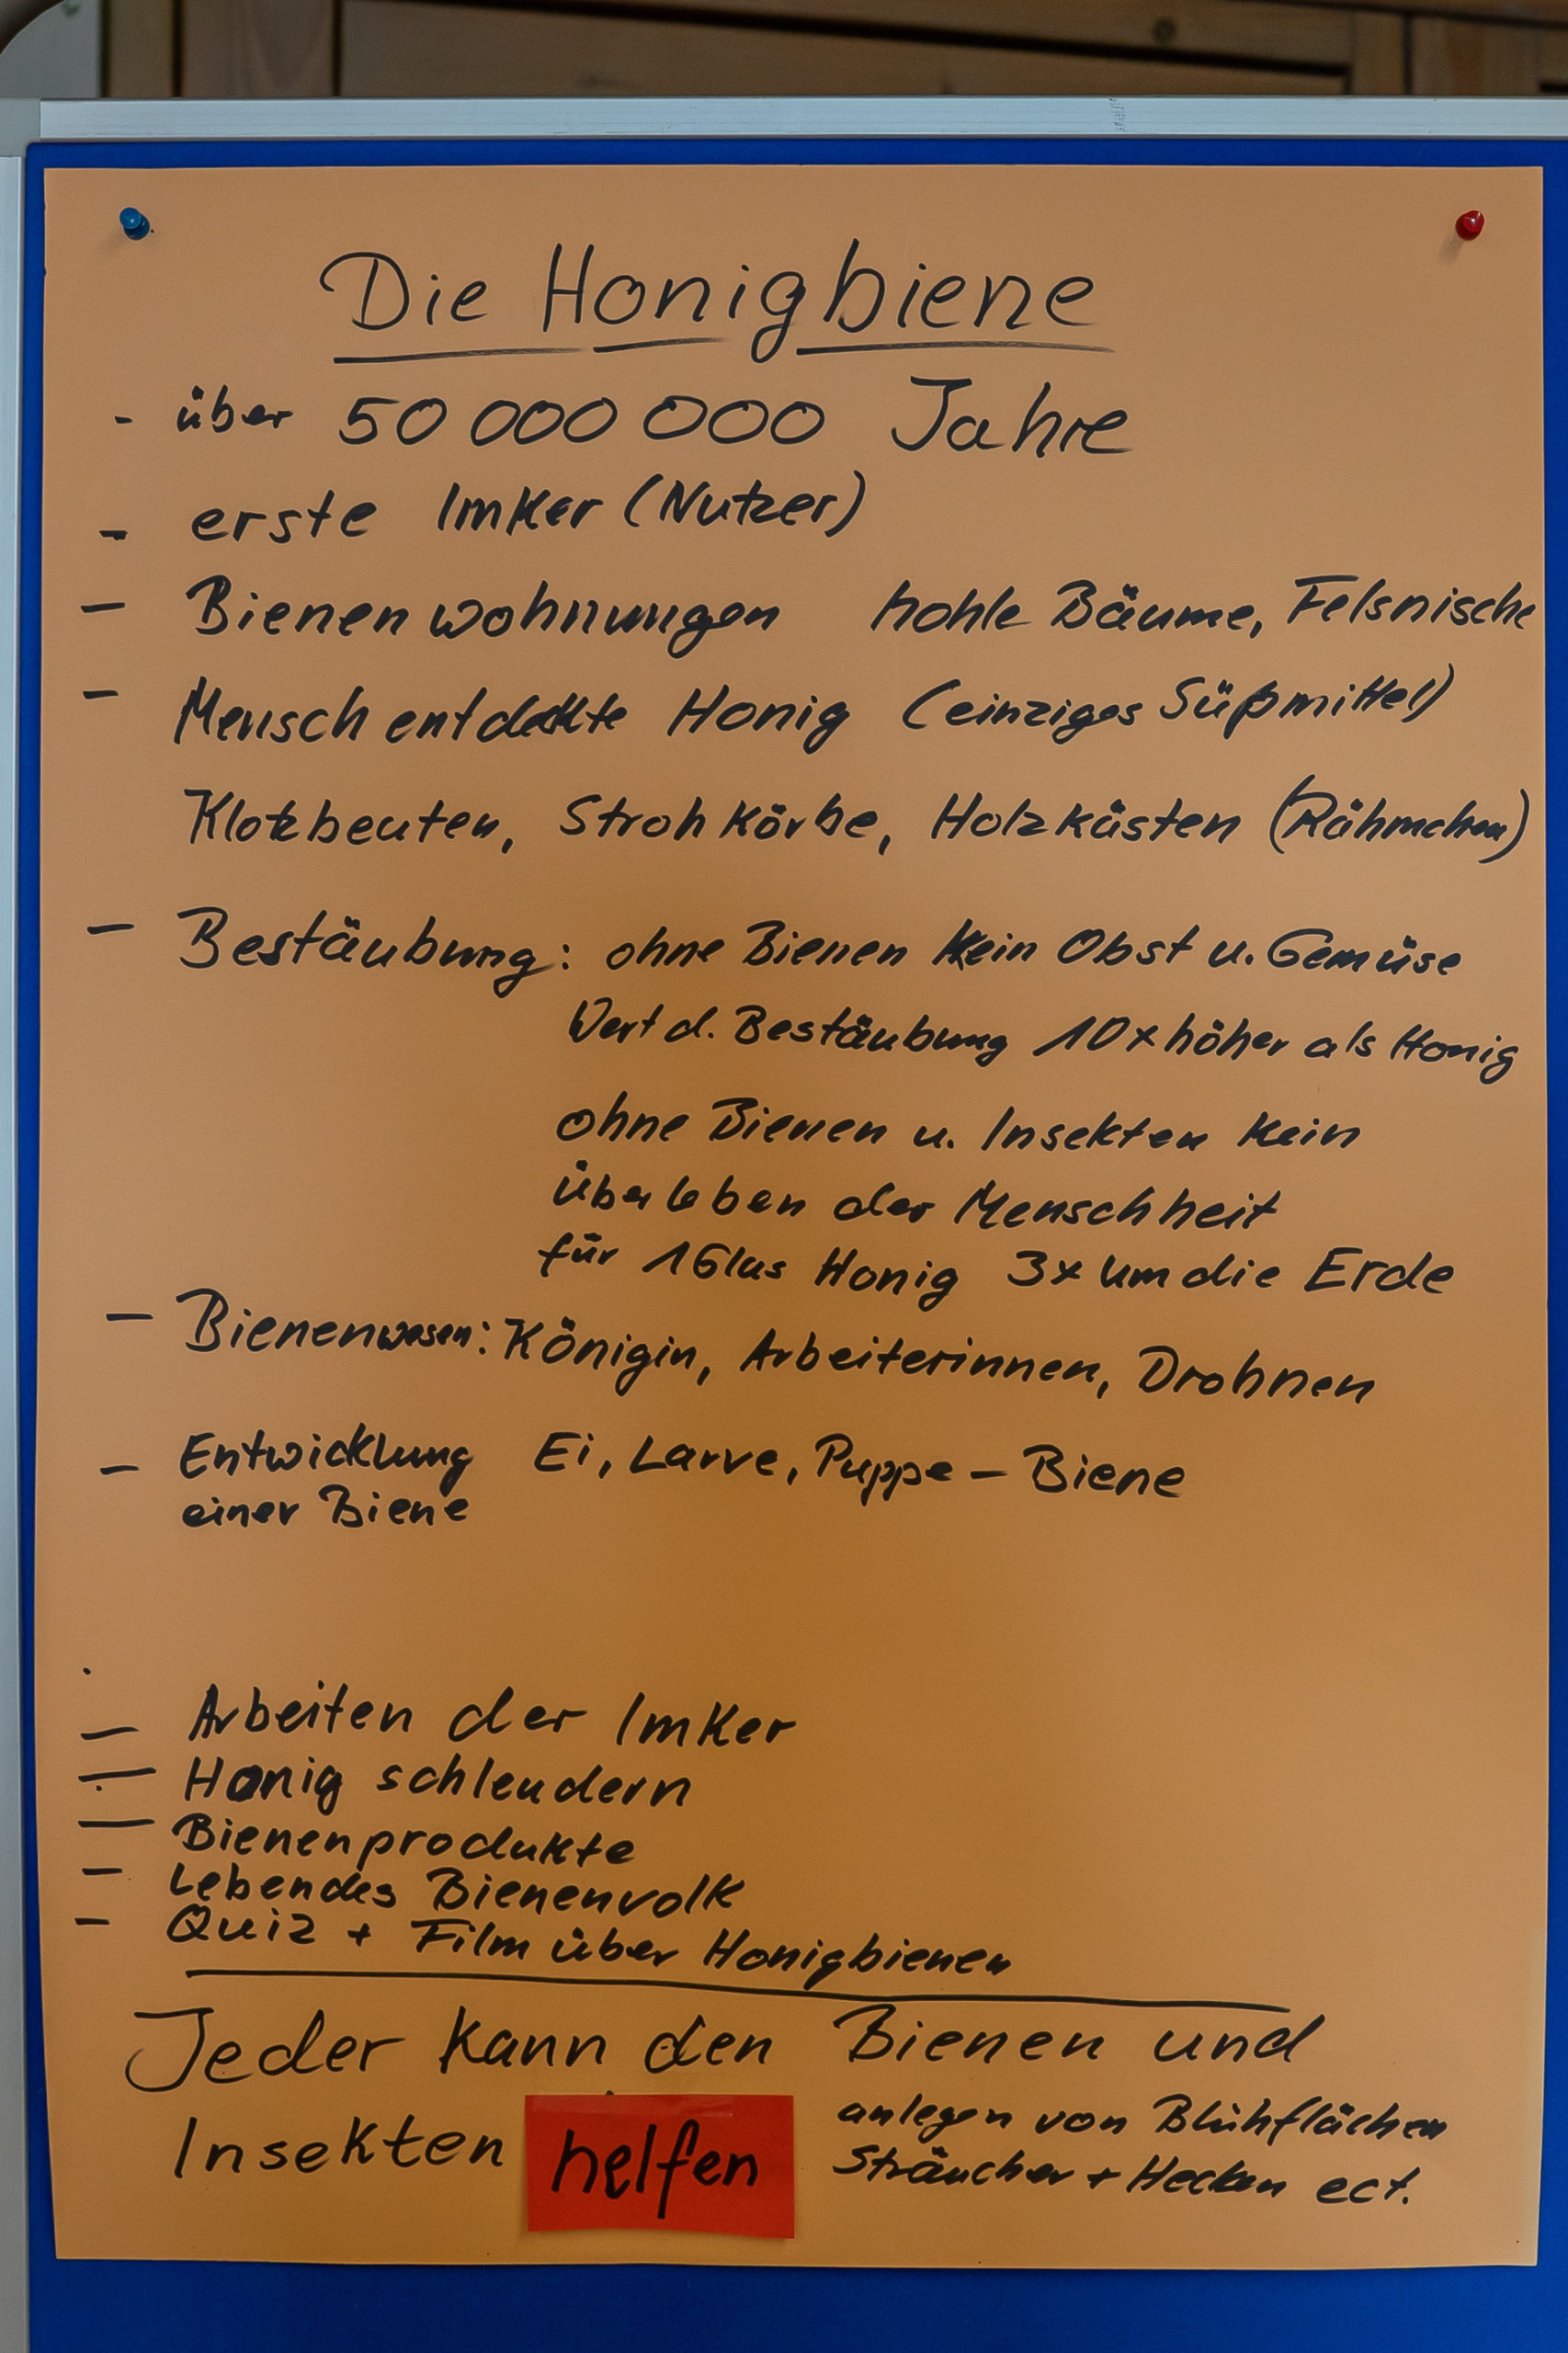 Die Honigbiene
- über 50 000 000 Jahre
- erste Imker (Nutzer)
- Bienenwohnungen hohle Bäume, Felsnische
- Mensch entdekte Honig (einziges Süßmittel)
Klotzbeuten, Strohkörbe, Holzkästen (Rähmchen)
- Bestäubung: ohne Bienen kein Obst u. Gemüse
Wert d. Bestäubung 10x höher als Honig
ohne Bienen u. Insekten kein
überleben der Menschheit
für 1 Glas Honig 3x um die Erde
- Bienenwesen: Königin, Arbeiterinnen, Drohnen
- Entwicklung Ei, Larve, Puppe - Biene
einer Biene
- Arbeiten der Imker
- Honig schleudern
- Bienenprodukte
- Lebendes Bienenvolk
- Quiz + Film über Honigbienen
Jeder kann den Bienen und
Insekten helfen anlegen von Blühflächen
Sträucher + Hecken ect.